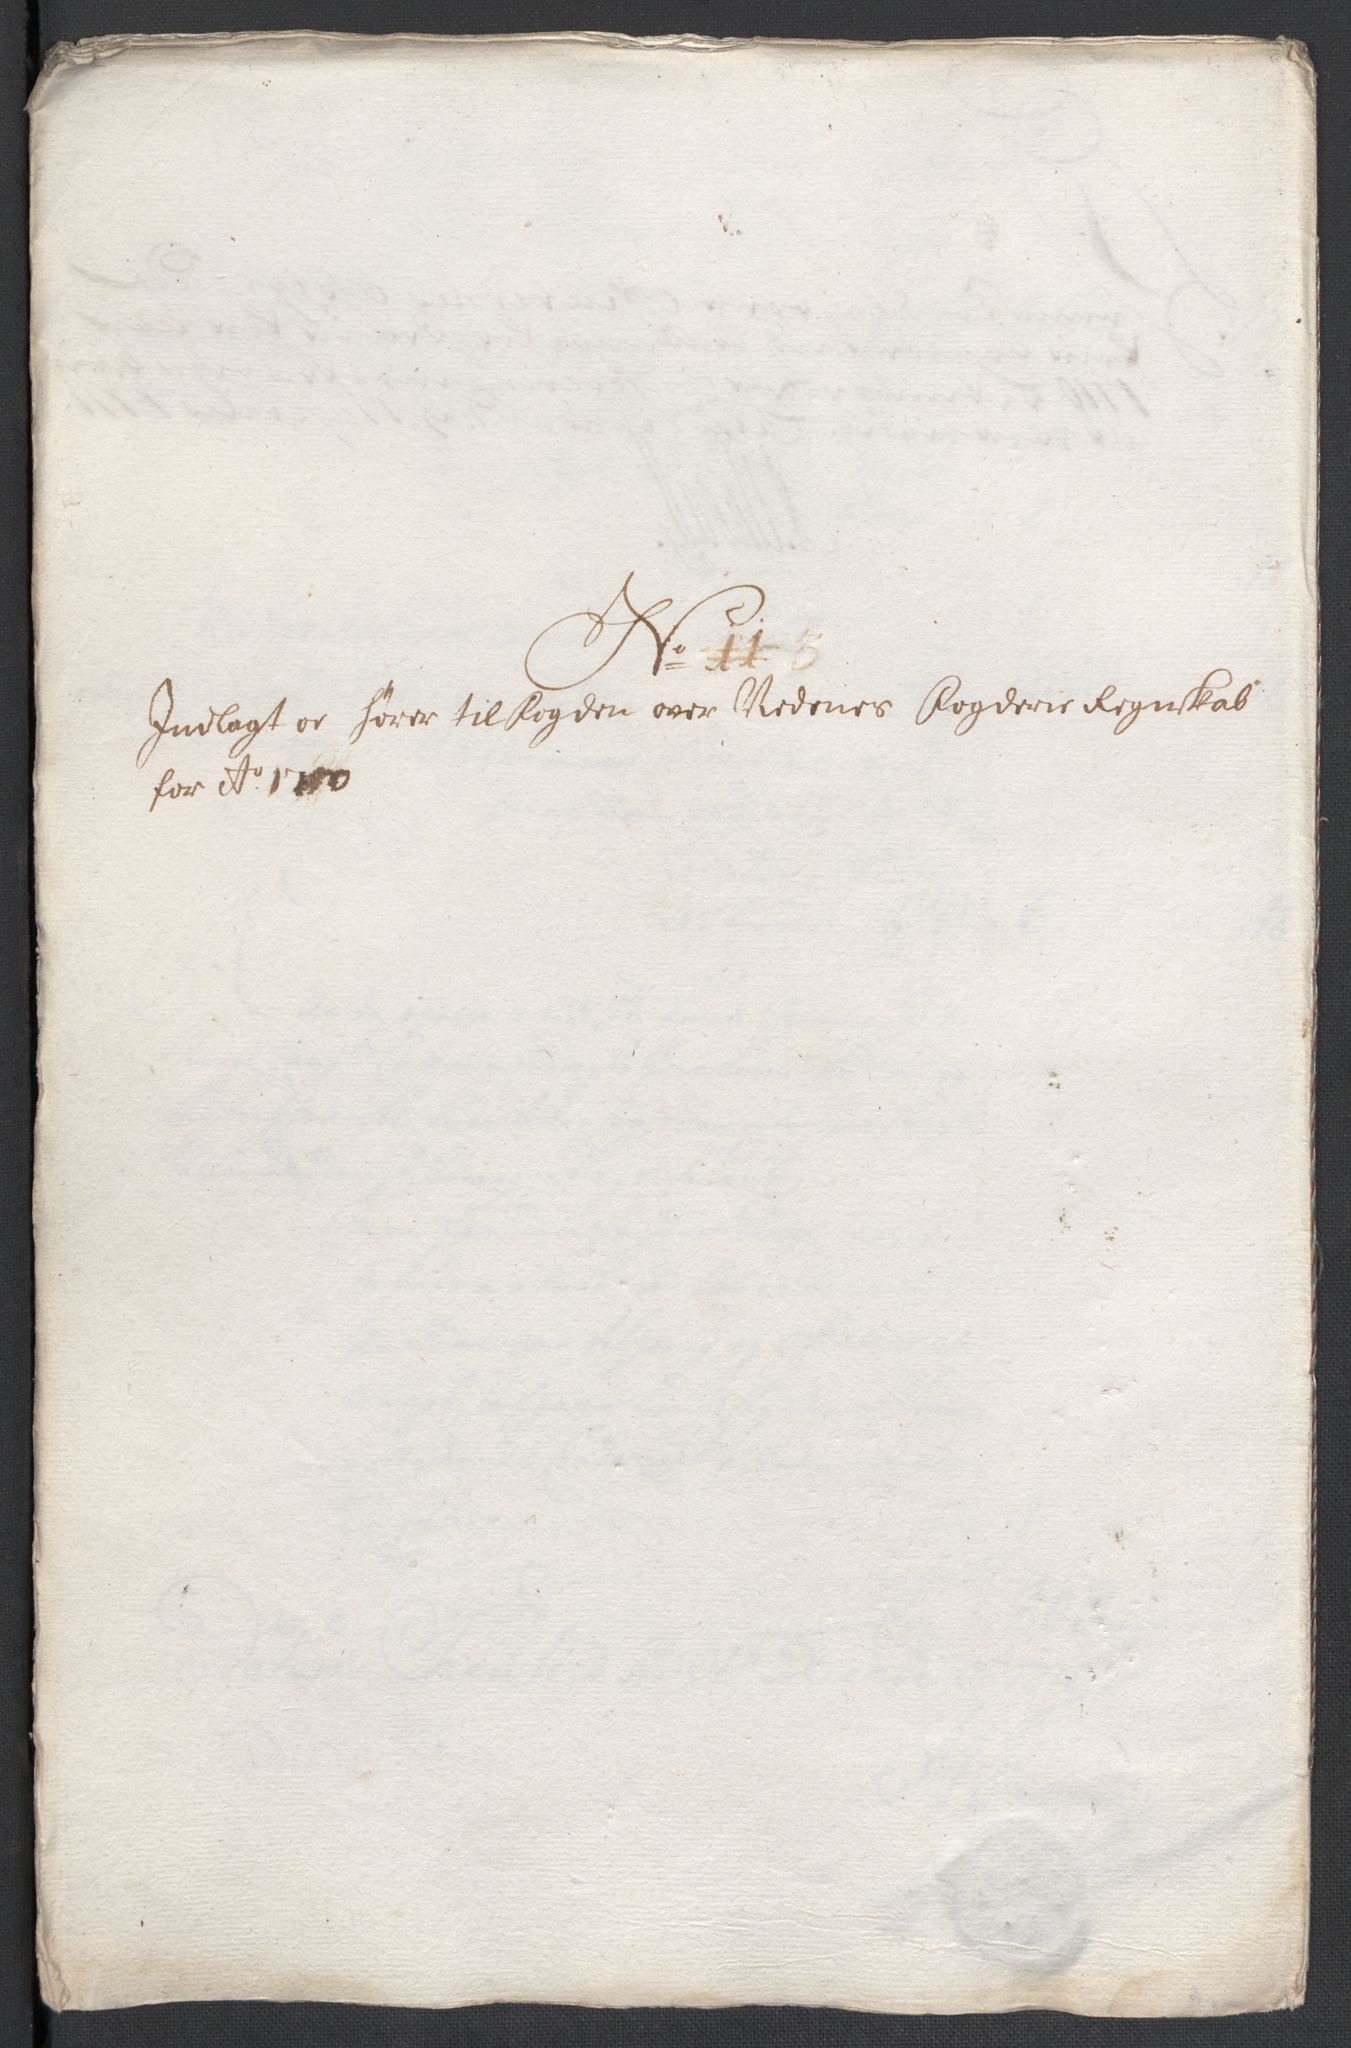 No 11 5
Indlagt oc hører til Fogden over Nedenes Fogderie Regnskab
for Ao 1710